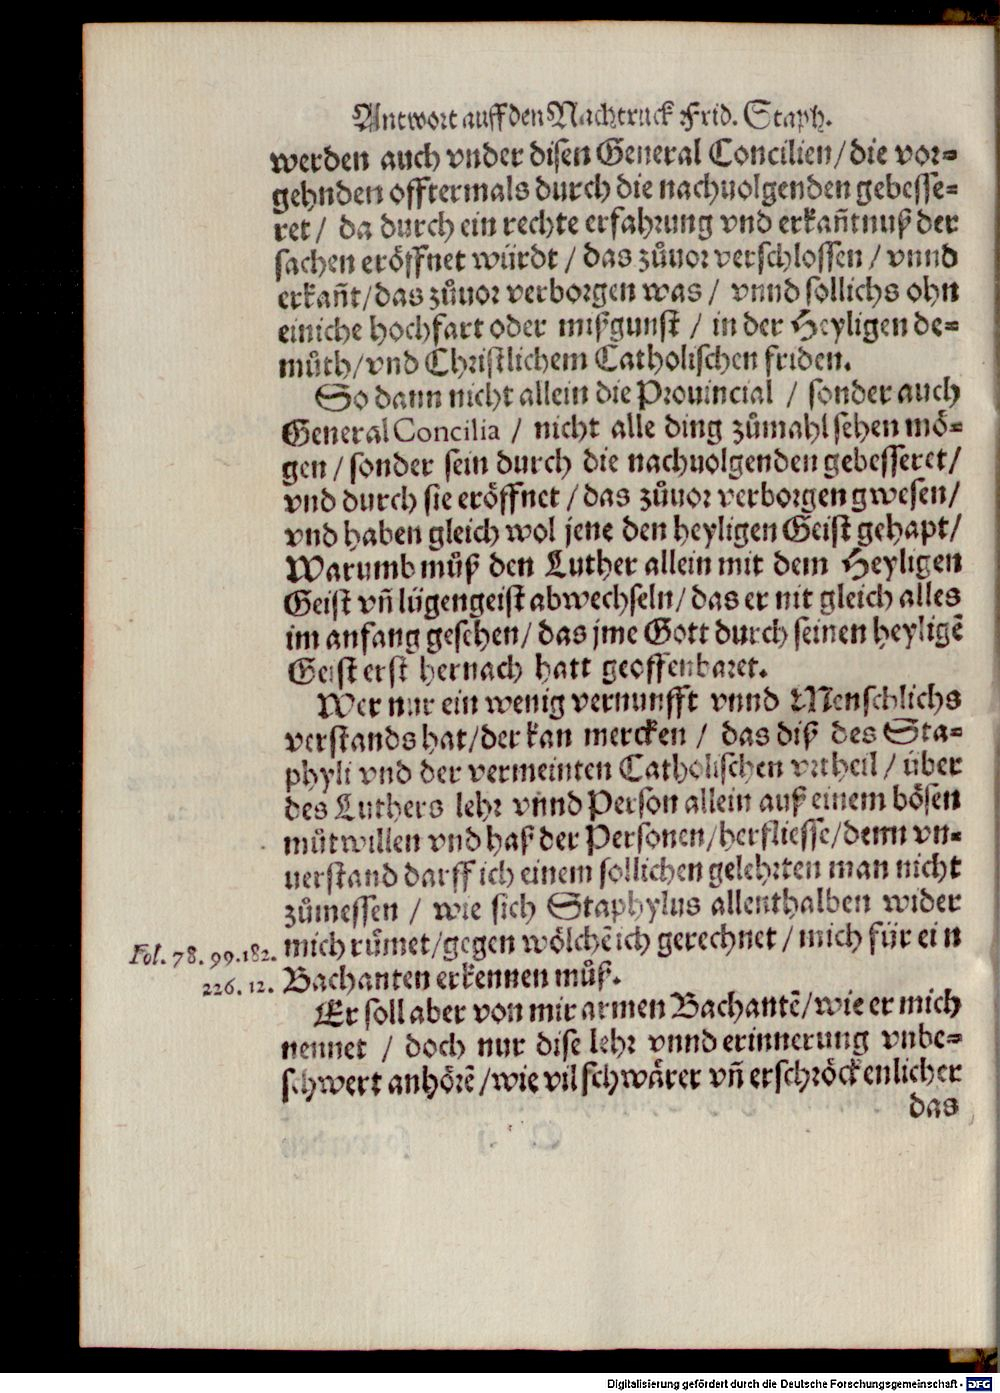 Antwort auff den Nachtruck Frid. Staph.
werden auch vnder disen General Concilien/die vor-
gehnden offtermals durch die nachuolgenden gebesse-
ret / da durch ein rechte erfahrung vnd erkañtnuß der
sachen eröffnet würdt / das zůuor verschlossen / vnnd
erkañt/das zůuor verborgen was / vnnd sollichs ohn
einiche hochfart oder mißgunst / in der Heyligen de-
můth/vnd Christlichem Catholischen friden.
So dann nicht allein die Prouincial / sonder auch
General Concilia / nicht alle ding zůmahl sehen mö-
gen / sonder sein durch die nachuolgenden gebesseret/
vnd durch sie eröffnet / das zůuor verborgen gwesen/
vnd haben gleich wol jene den heyligen Geist gehapt/
Warumb můß den Luther allein mit dem Heyligen
Geist vñ lügengeist abwechseln/ das er nit gleich alles
im anfang gesehen/ das jme Gott durch seinen heyligẽ
Geist erst hernach hatt geoffenbaret.
Wer nur ein wenig vernunfft vnnd Menschlichs
verstands hat/der kan mercken / das diß des Sta-
phyli vnd der vermeinten Catholischen vrtheil / über
des Luthers lehr vnnd Person allein auß einem bösen
můtwillen vnd haß der Personen/herfliesse/denn vn-
uerstand darff ich einem sollichen gelehrten man nicht
zůmessen / wie sich Staphylus allenthalben wider
mich růmet/gegen wölchẽ ich gerechnet / mich für ein
Fol. 78. 99. 182.
226. 12.
Bachanten erkennen můß.
Er soll aber von mir armen Bachantẽ/wie er mich
nennet / doch nur dise lehr vnnd erinnerung vnbe-
schwert anhörẽ/wie vil schwärer vñ erschröckenlicher
das
Digitalisierung gefördert durch die Deutsche Forschungsgemeinschaft - DFG